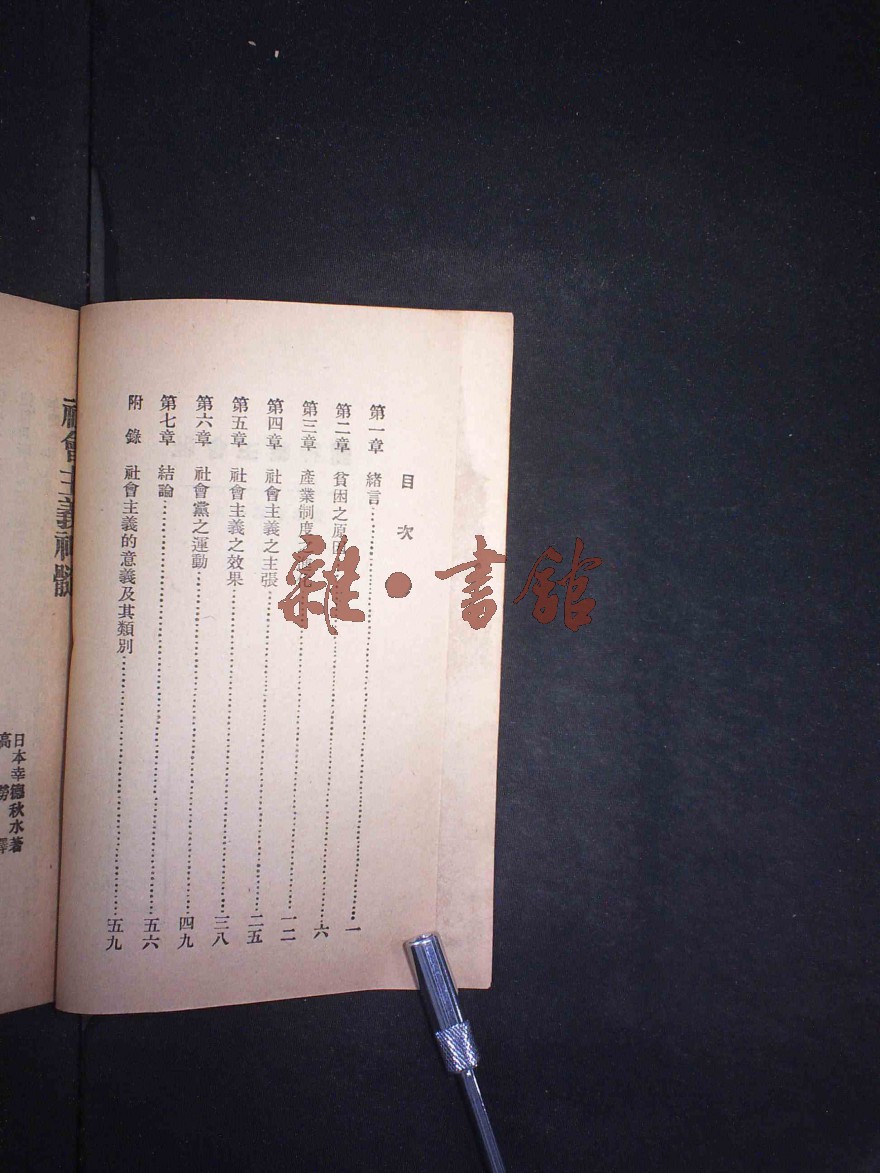 目次
第一章 緒言…一
第二章 貧困之原因…六
第三章 產業制度…一二
第四章 社會主義之主張…二五
第五章 社會主義之效果…三八
第六章 社會黨之運動…四九
第七章 結論…五六
附錄 社會主義的意義及其類別…五九
社會主義神髓
日本幸德秋水著
高勞譯
雜·書館